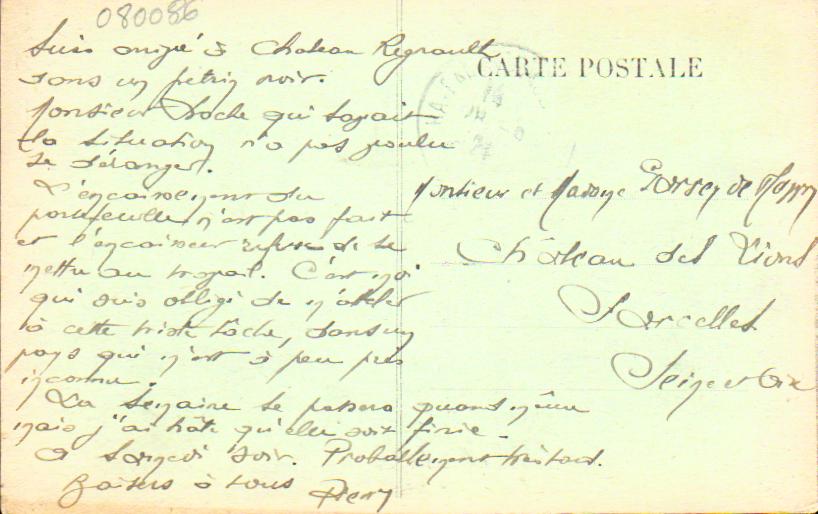 080086
Suis arrivé à Chateau Regnault
dans un petrin noir.
Monsieur Roche qui savait
la situation n'a pas voulu
se déranger.
L'encaissement du
portefeuille n'est pas fait
et l'encaisseur refuse de se
mettre au travail. C'est moi
qui suis obligé de m'atteler
à cette triste tâche, dans un
pays qui m'est à peu près
inconnu.
La semaine se passera quand même
mais j'ai hâte qu'elle soit finie.
A samedi soir. Probablement très tard.
Baisers à tous
CARTE POSTALE
Monsieur et Madame de
Château des Lions
Sarcelles
Seine et Oise